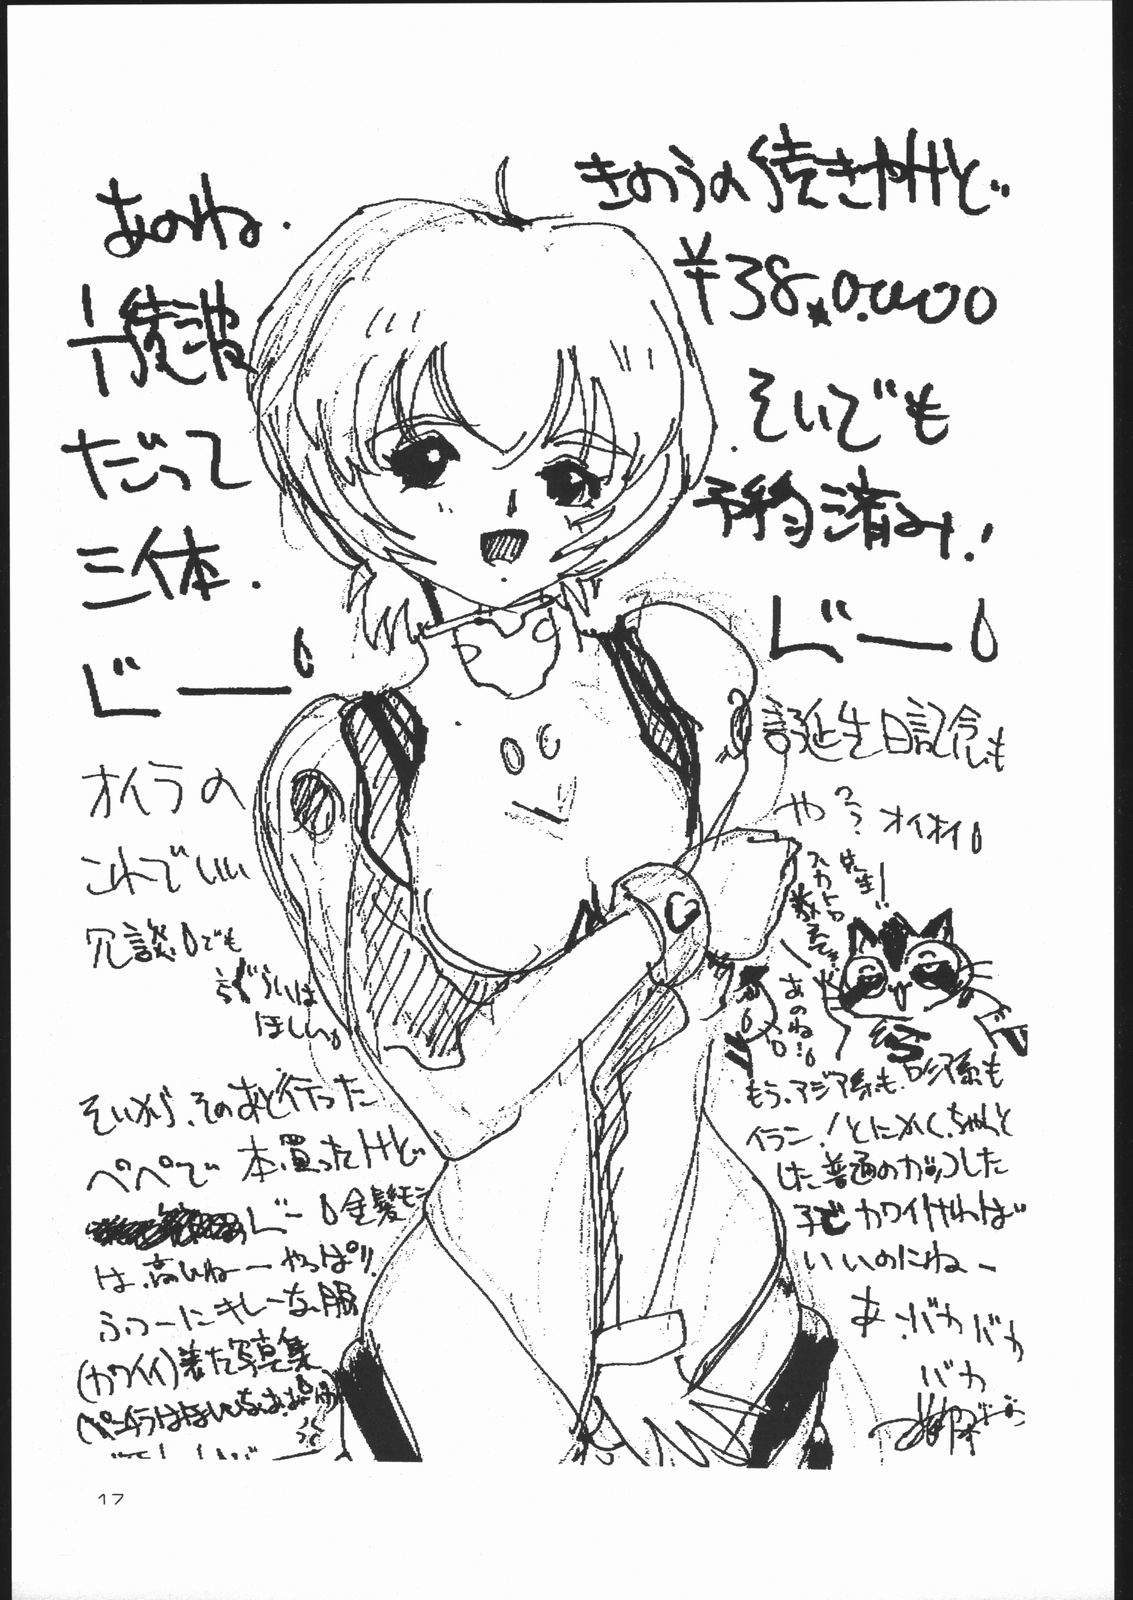 きのうの続きやけど..
¥38,0.000
そいでも
予約済み!
じー
誕生日記念も
やろ? オイオイ
先生!
スカトロ
教えて
あのね!
もう、アジア系も、ロシア系も
イラン!とにかく、ちゃんと
した普通のカッコした
子でカワイければ
いいのにねー
あ、バカバカ
バカ
あのね.
綾波
だって
三体.
じー
オイラの
これでいい
冗談でも
ほしい。
そいから、そのあと行った
ペペで 本買ったけど
じー 金髪モン
は、高いねーやっぱり、
ふつーにキレーな服
(カワイイ)着た写真集
17